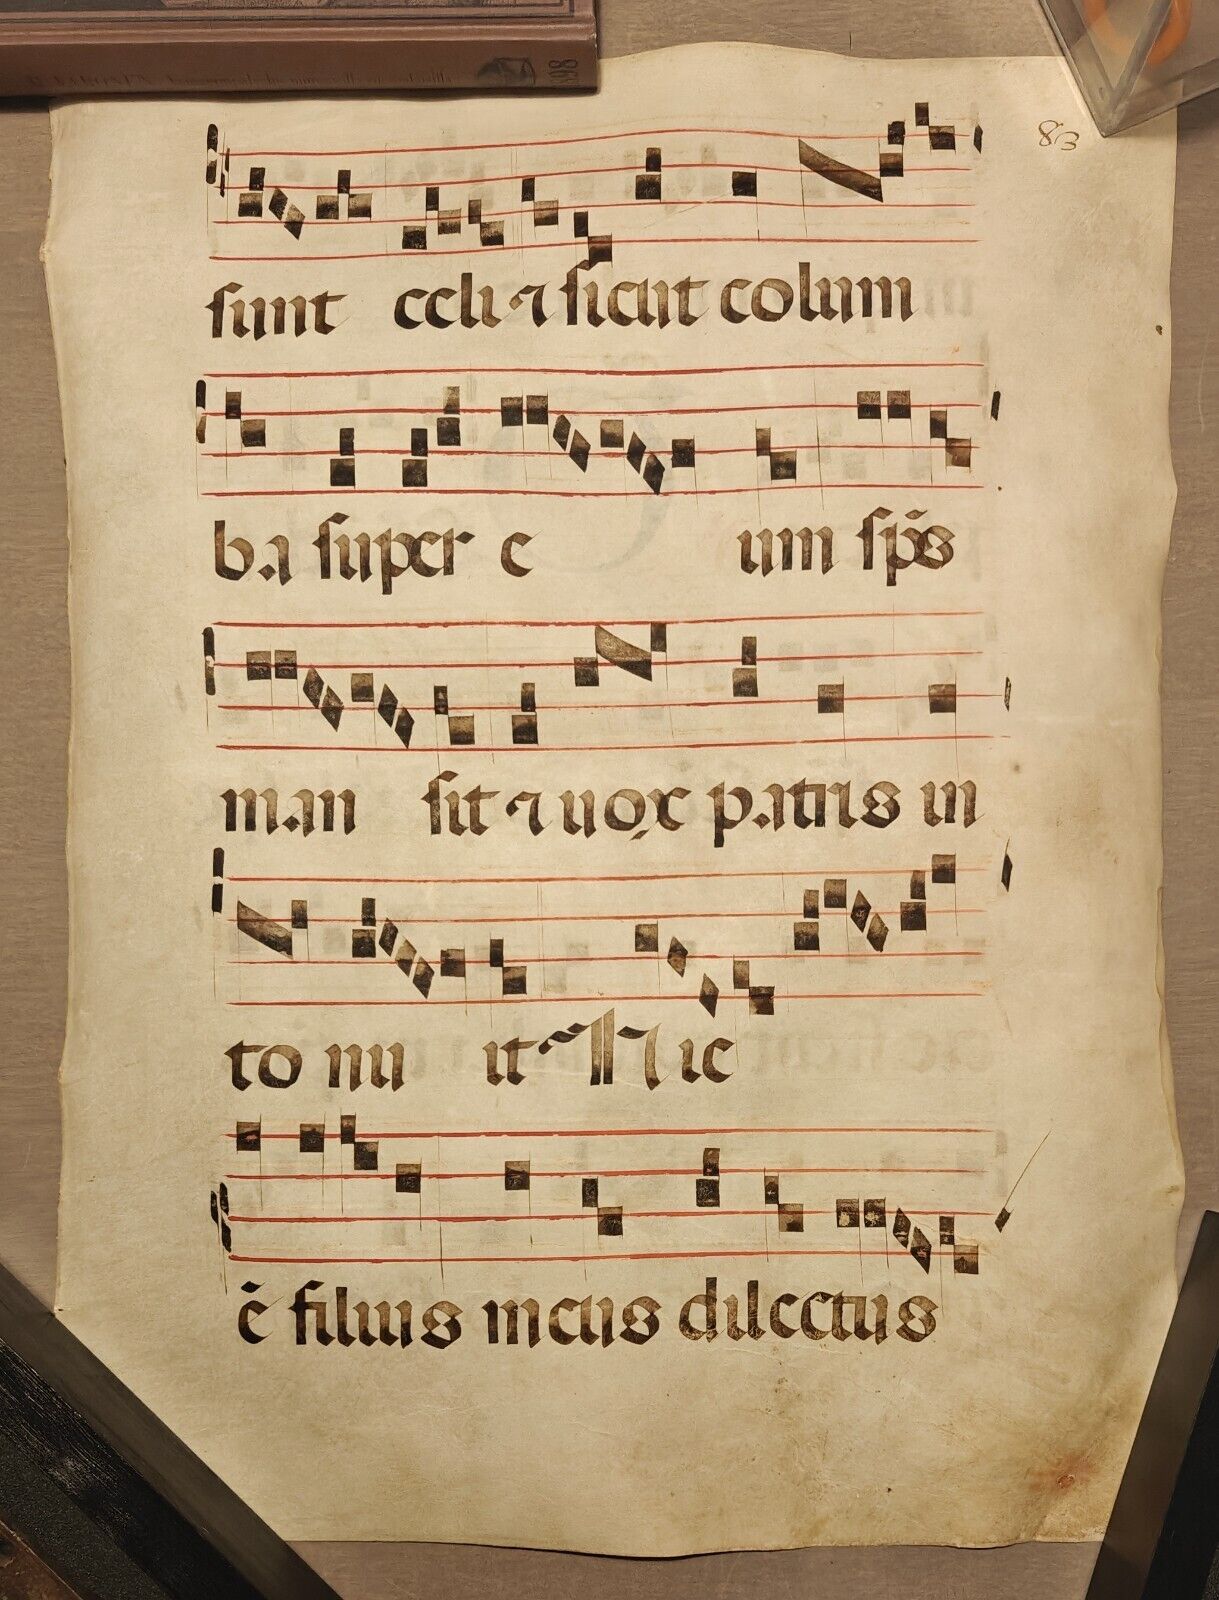 83
sunt celi ⁊ sicut colum
ba super e um sp̃s
man sit ⁊ uox patris in
to nu it hic
ẽ filius meus dilectus